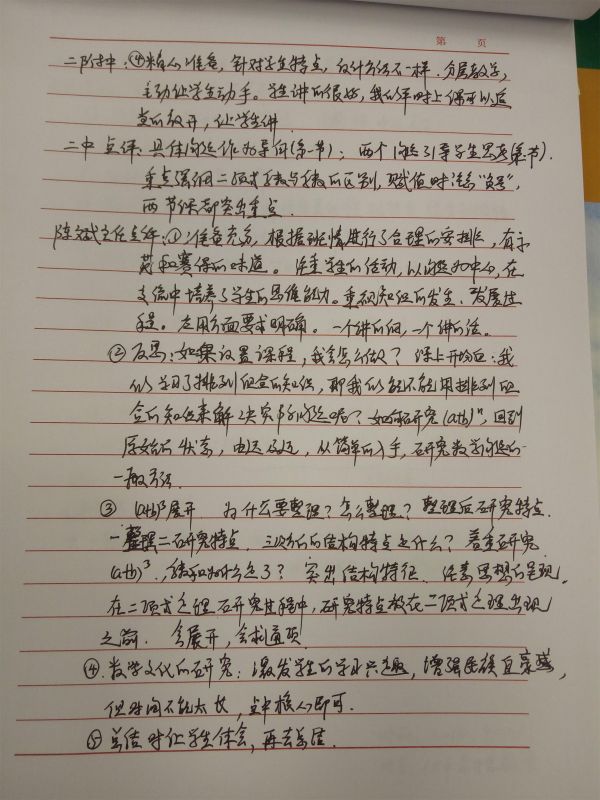 第 页
二附中：④精心准备，针对学生特点，设计方法不一样，分层教学，
主动让学生动手。学生讲的很好，我们平时上课可以适
当的放开，让学生讲
二中点评：具体问题作为导向(第一节)；两个问题引导学生思考(第二节).
重点强调二项式系数与系数的区别，赋值时注意"负号"，
两节课都突出重点.
陈斌主任点评：①准备充分，根据班情进行了合理的安排，有示
范和赛课的味道。注重学生的活动，以问题为中心，在
交流中培养了学生的思维能力。重视知识的发生、发展过
程。应用方面要求明确。一个讲的细，一个讲的活。
②反思：如果设置课程，我会怎么做？课上开场白：我
们学习了排列组合的知识，那我们能不能用排列组
合的知识来解决实际问题呢？如何研究(a+b)ⁿ，回到
原始的状态，由远及近，从简单的入手，研究数学问题的
一般方法.
③ (a+b)²展开 为什么要整理？怎么整理？整理后研究特点.
一整理二研究特点. 三次方的结构特点是什么？着重研究
(a+b)³，系数为什么是3？突出结构特征. 任意思想的呈现.
在二项式定理研究过程中，研究特点放在二项式定理出现
之前. 会展开，会求通项.
④.数学文化的研究：激发学生的学习兴趣，增强民族自豪感，
但时间不能太长，集中核心即可.
⑤总结时让学生体会，再去总结.